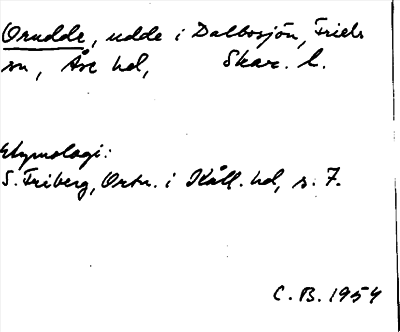 Orudde, udde i Dalbosjön, Friels
sn, Åse hd, Skar. l.
Etymologi:
S. Friberg, Ortn. i Kåll. hd, s. 7.
C. B. 1954